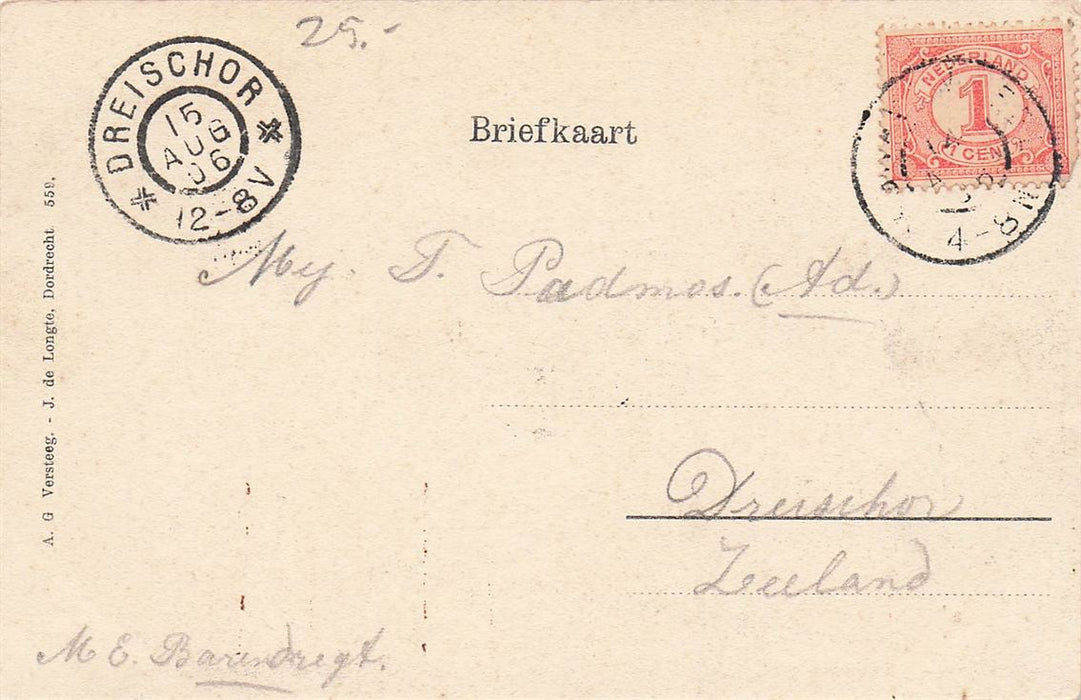 25.-
DREISCHOR
15 AUG 06
12-8V
NEDERLAND
1
1 CENT
4-8N
Briefkaart
Mej. T. Padmos. (Ad.)
Dreischor
Zeeland
M E. Barendregt.
A. G Versteeg. - J. de Longte, Dordrecht 559.